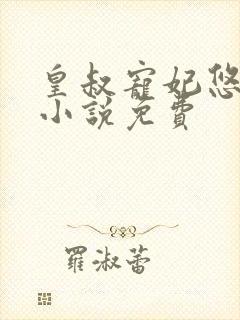 皇叔寵妃悠
小說免費
羅淑蕾